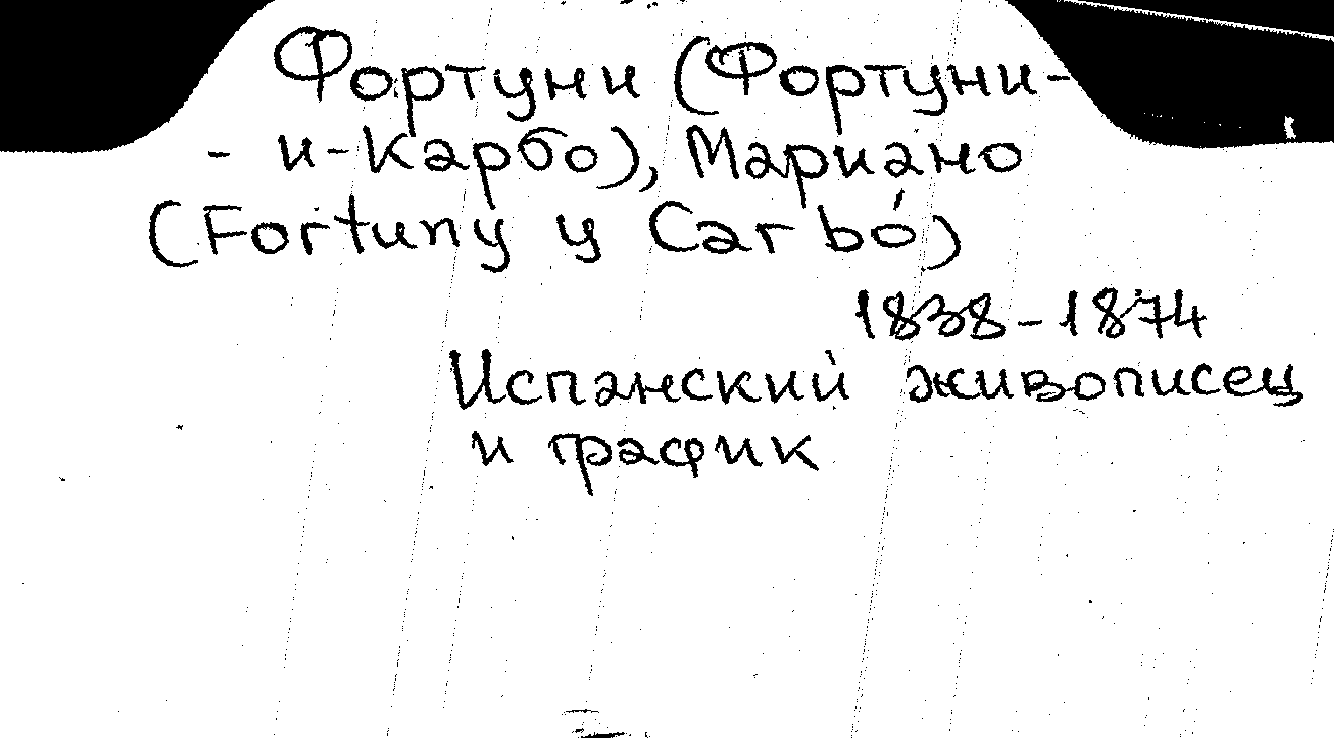 Фортуни (Фортуни-
- и-Карбо), Мариано
(Fortuny y Carbó)
1838-1874
Испанский живописец
и график